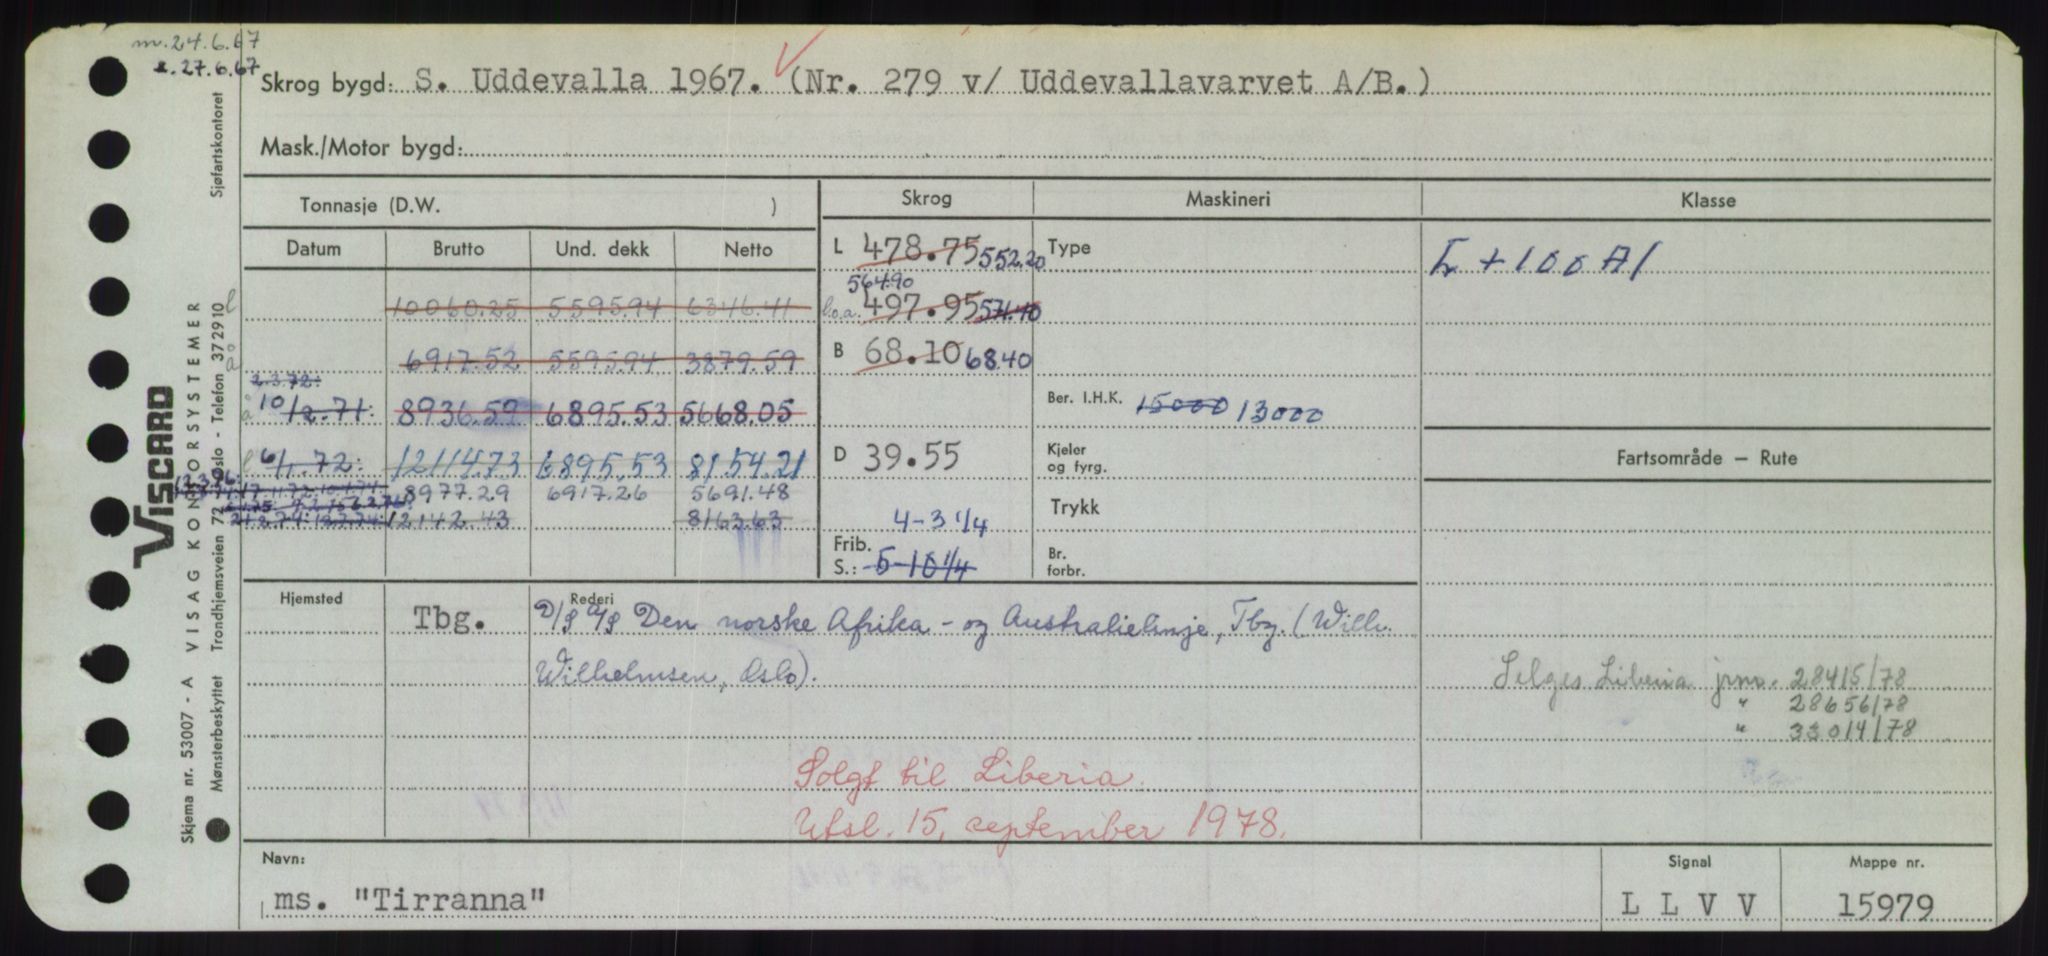 m. 24.6.67
r. 27.6.67
Skrog bygd: S. Uddevalla 1967. (Nr. 279 v/ Uddevallavarvet A/B.)
Mask./Motor bygd:
Tonnasje (D.W. )
Skrog Maskineri Klasse
Datum Brutto Und. dekk Netto
L 478.75 552.20
Type
Ł + 100 A1
l 10060.25 5595.94 6346.41
564.90
l.o.a. 497.95 571.10
å 6917.52 5595.94 3879.59
B 68.10 68.40
2.3.72.
å 10/2.71. 8936.59 6895.53 5668.05
Ber. I.H.K. 15000 13000
l 6/1.72. 12114.73 6895.53 8154.21
D 39.55
Kjeler
og fyrg.
Fartsområde – Rute
8977.29 6917.26 5691.48
12142.43 8163.63
4-3 1/4
Trykk
Frib.
S.: 5-10 1/4
Br.
forbr.
Hjemsted Tbg.
Rederi
D/S A/S Den norske Afrika- og Australielinje, Tbg. (Wilh.
Wilhelmsen, Oslo).
Selges Liberia jrnr. 28415/78
" 28656/78
" 33014/78
Solgt til Liberia.
Utsl. 15. september 1978.
Navn:
ms. "Tirranna"
Signal
L L V V
Mappe nr.
15979
VISCARD
Skjema nr. 53007 - A VISAG KONTORSYSTEMER
Mønsterbeskyttet Trondhjemsveien 72 Oslo - Telefon 37 29 10 Sjøfartskontoret